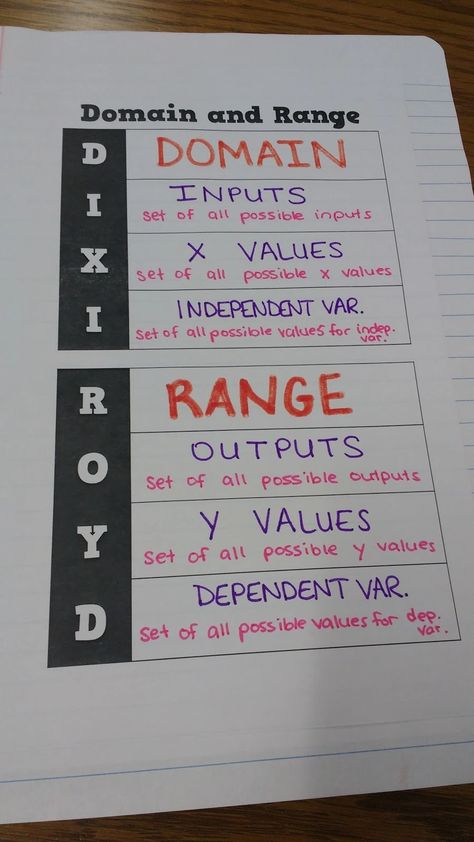 Domain and Range
D DOMAIN
I INPUTS
set of all possible inputs
X X VALUES
set of all possible x values
I INDEPENDENT VAR.
set of all possible values for indep.
var.
R RANGE
O OUTPUTS
set of all possible outputs
Y Y VALUES
set of all possible y values
D DEPENDENT VAR.
set of all possible values for dep.
var.